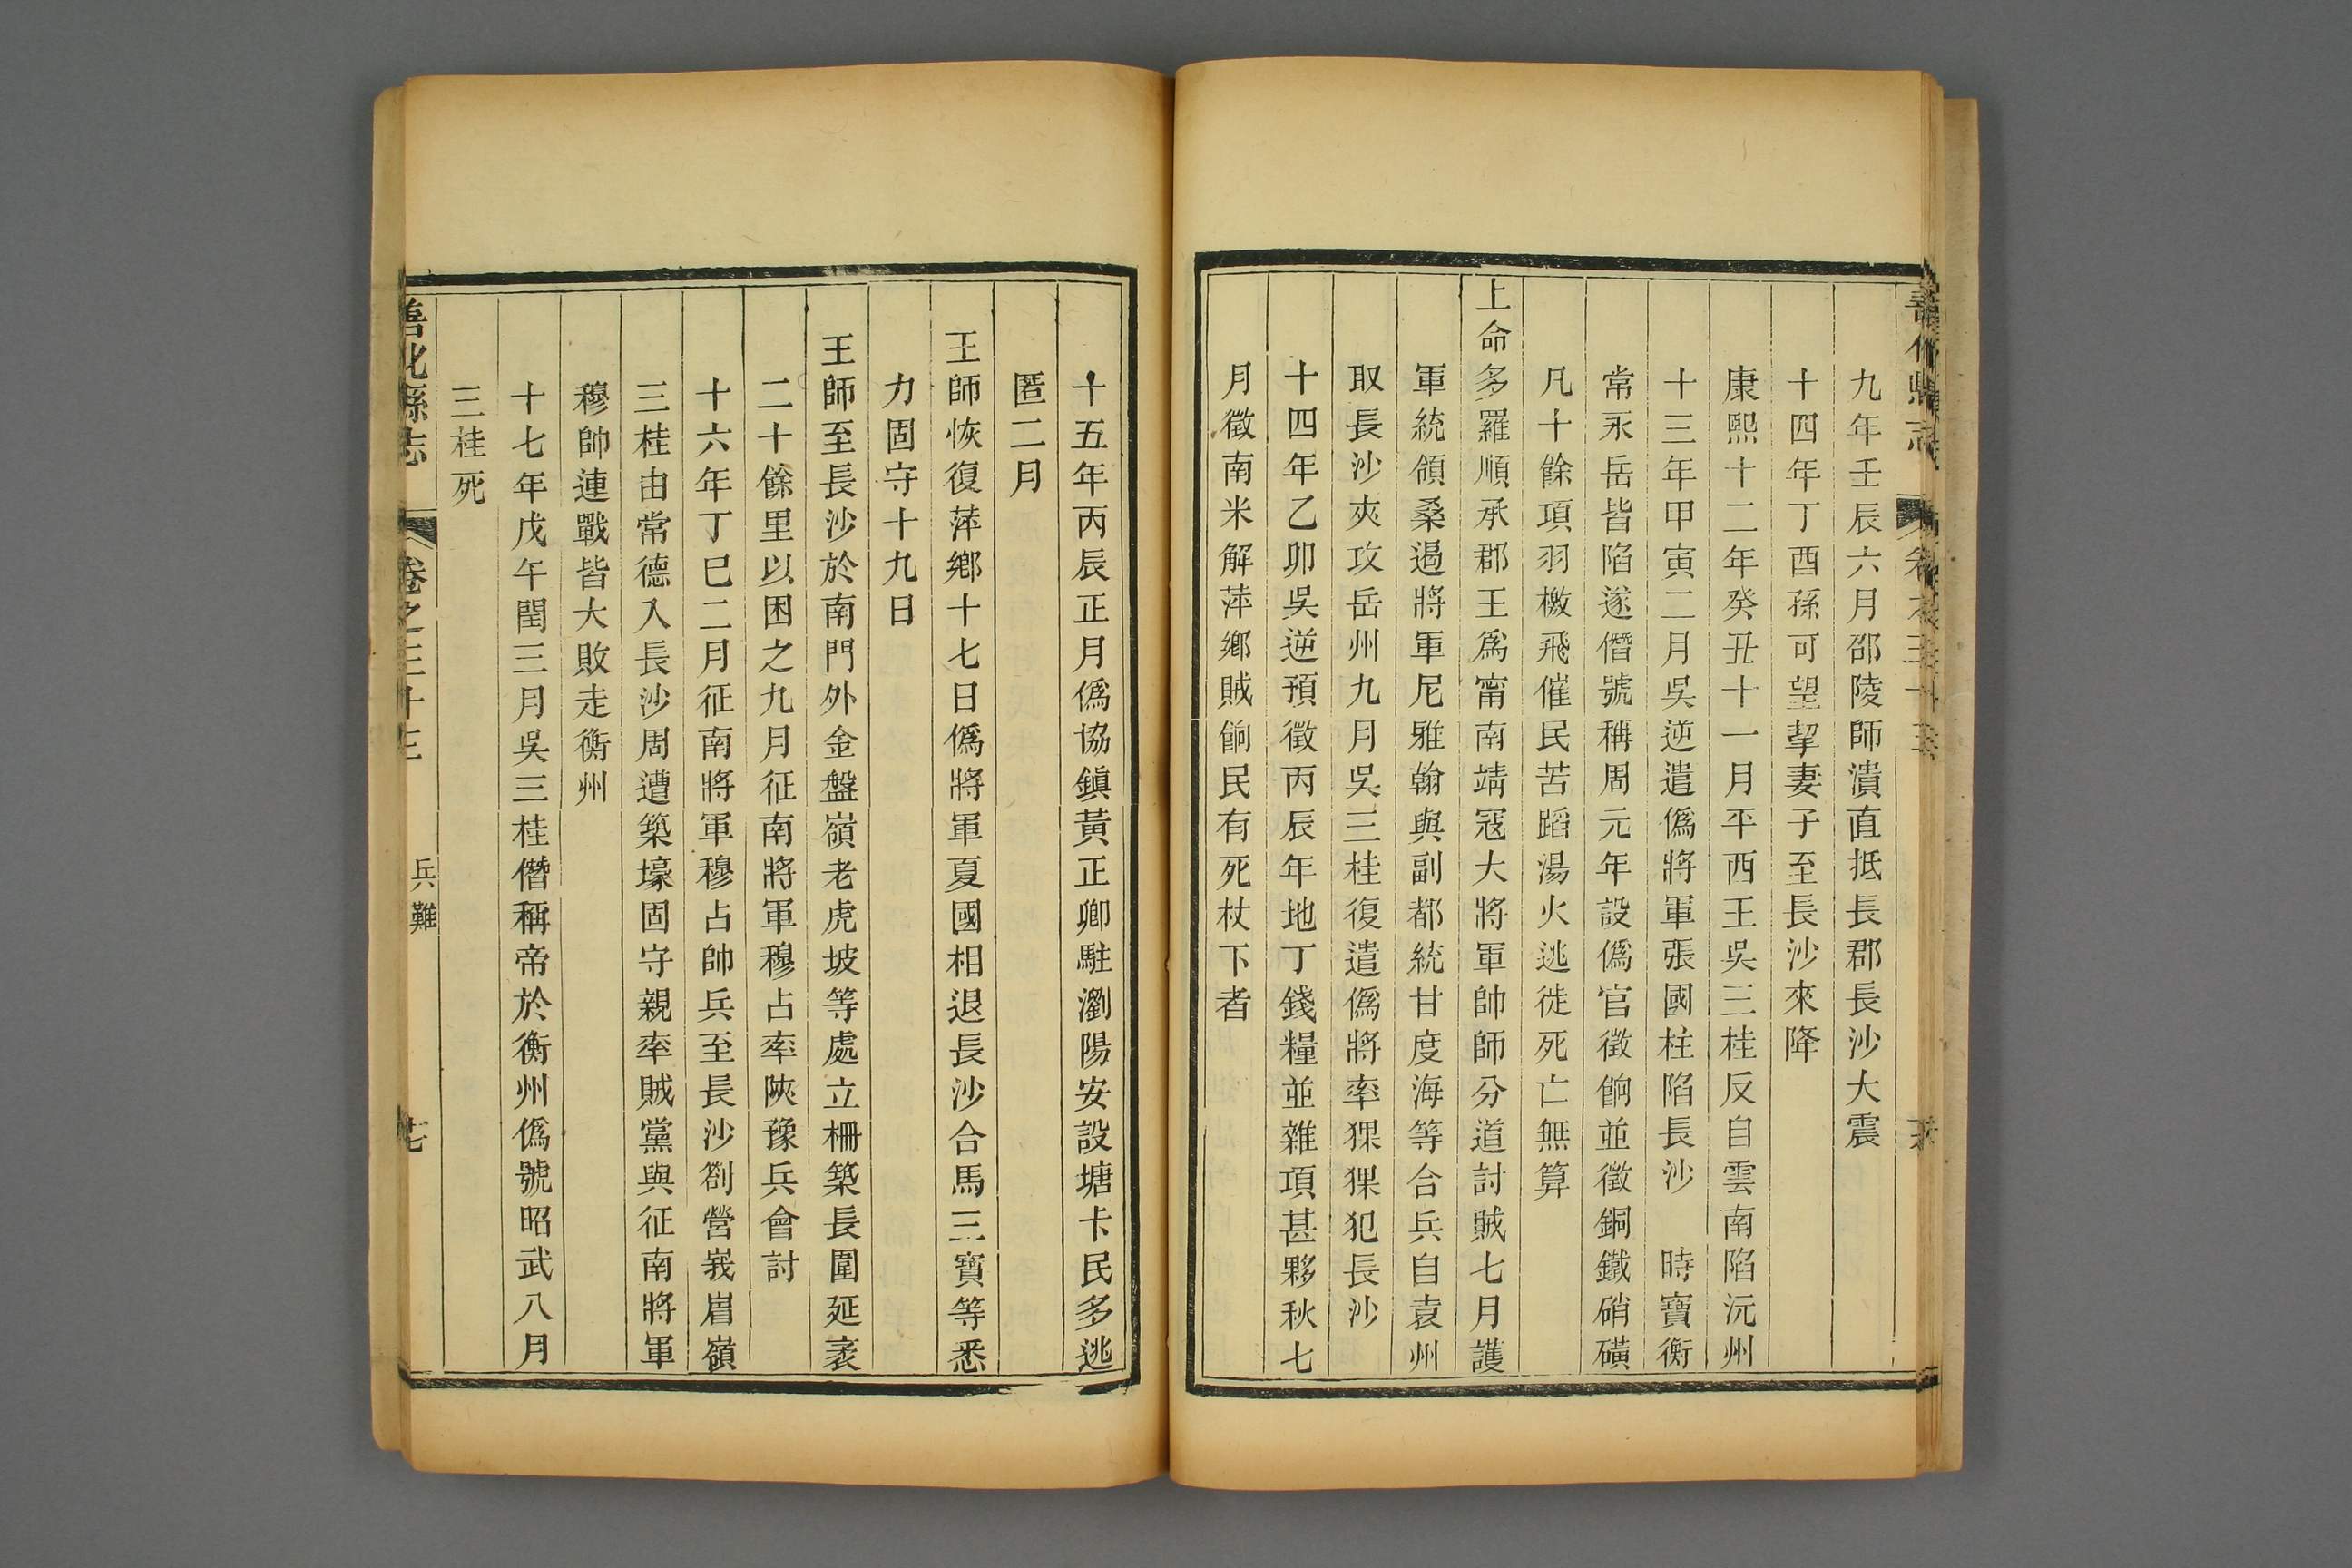 善化縣志
卷之三十三
九年壬辰六月邵陵師潰直抵長郡長沙大震
十四年丁酉孫可望挈妻子至長沙來降
康熙十二年癸丑十一月平西王吳三桂反自雲南陷沅州
十三年甲寅二月吳逆遣僞將軍張國柱陷長沙　時寶衡
常永岳皆陷遂僭號稱周元年設僞官徵餉並徵銅鐵硝磺
凡十餘項羽檄飛催民苦蹈湯火逃徙死亡無算
上命多羅順承郡王爲甯南靖冦大將軍帥師分道討賊七月護
軍統領桑遏將軍尼雅翰與副都統甘度海等合兵自袁州
取長沙夾攻岳州九月吳三桂復遣僞將率猓猓犯長沙
十四年乙卯吳逆預徵丙辰年地丁錢糧並雜項甚夥秋七
月徵南米解萍鄉賊餉民有死杖下者
十五年丙辰正月僞協鎮黃正卿駐瀏陽安設塘卡民多逃
匿二月
王師恢復萍鄉十七日僞將軍夏國相退長沙合馬三寶等悉
力固守十九日
王師至長沙於南門外金盤嶺老虎坡等處立柵築長圍延袤
二十餘里以困之九月征南將軍穆占率陝豫兵會討
十六年丁巳二月征南將軍穆占帥兵至長沙劄營峩眉嶺
三桂由常德入長沙周遭築壕固守親率賊黨與征南將軍
穆帥連戰皆大敗走衡州
十七年戊午閏三月吳三桂僭稱帝於衡州僞號昭武八月
三桂死
善化縣志
卷之三十三
兵難
七